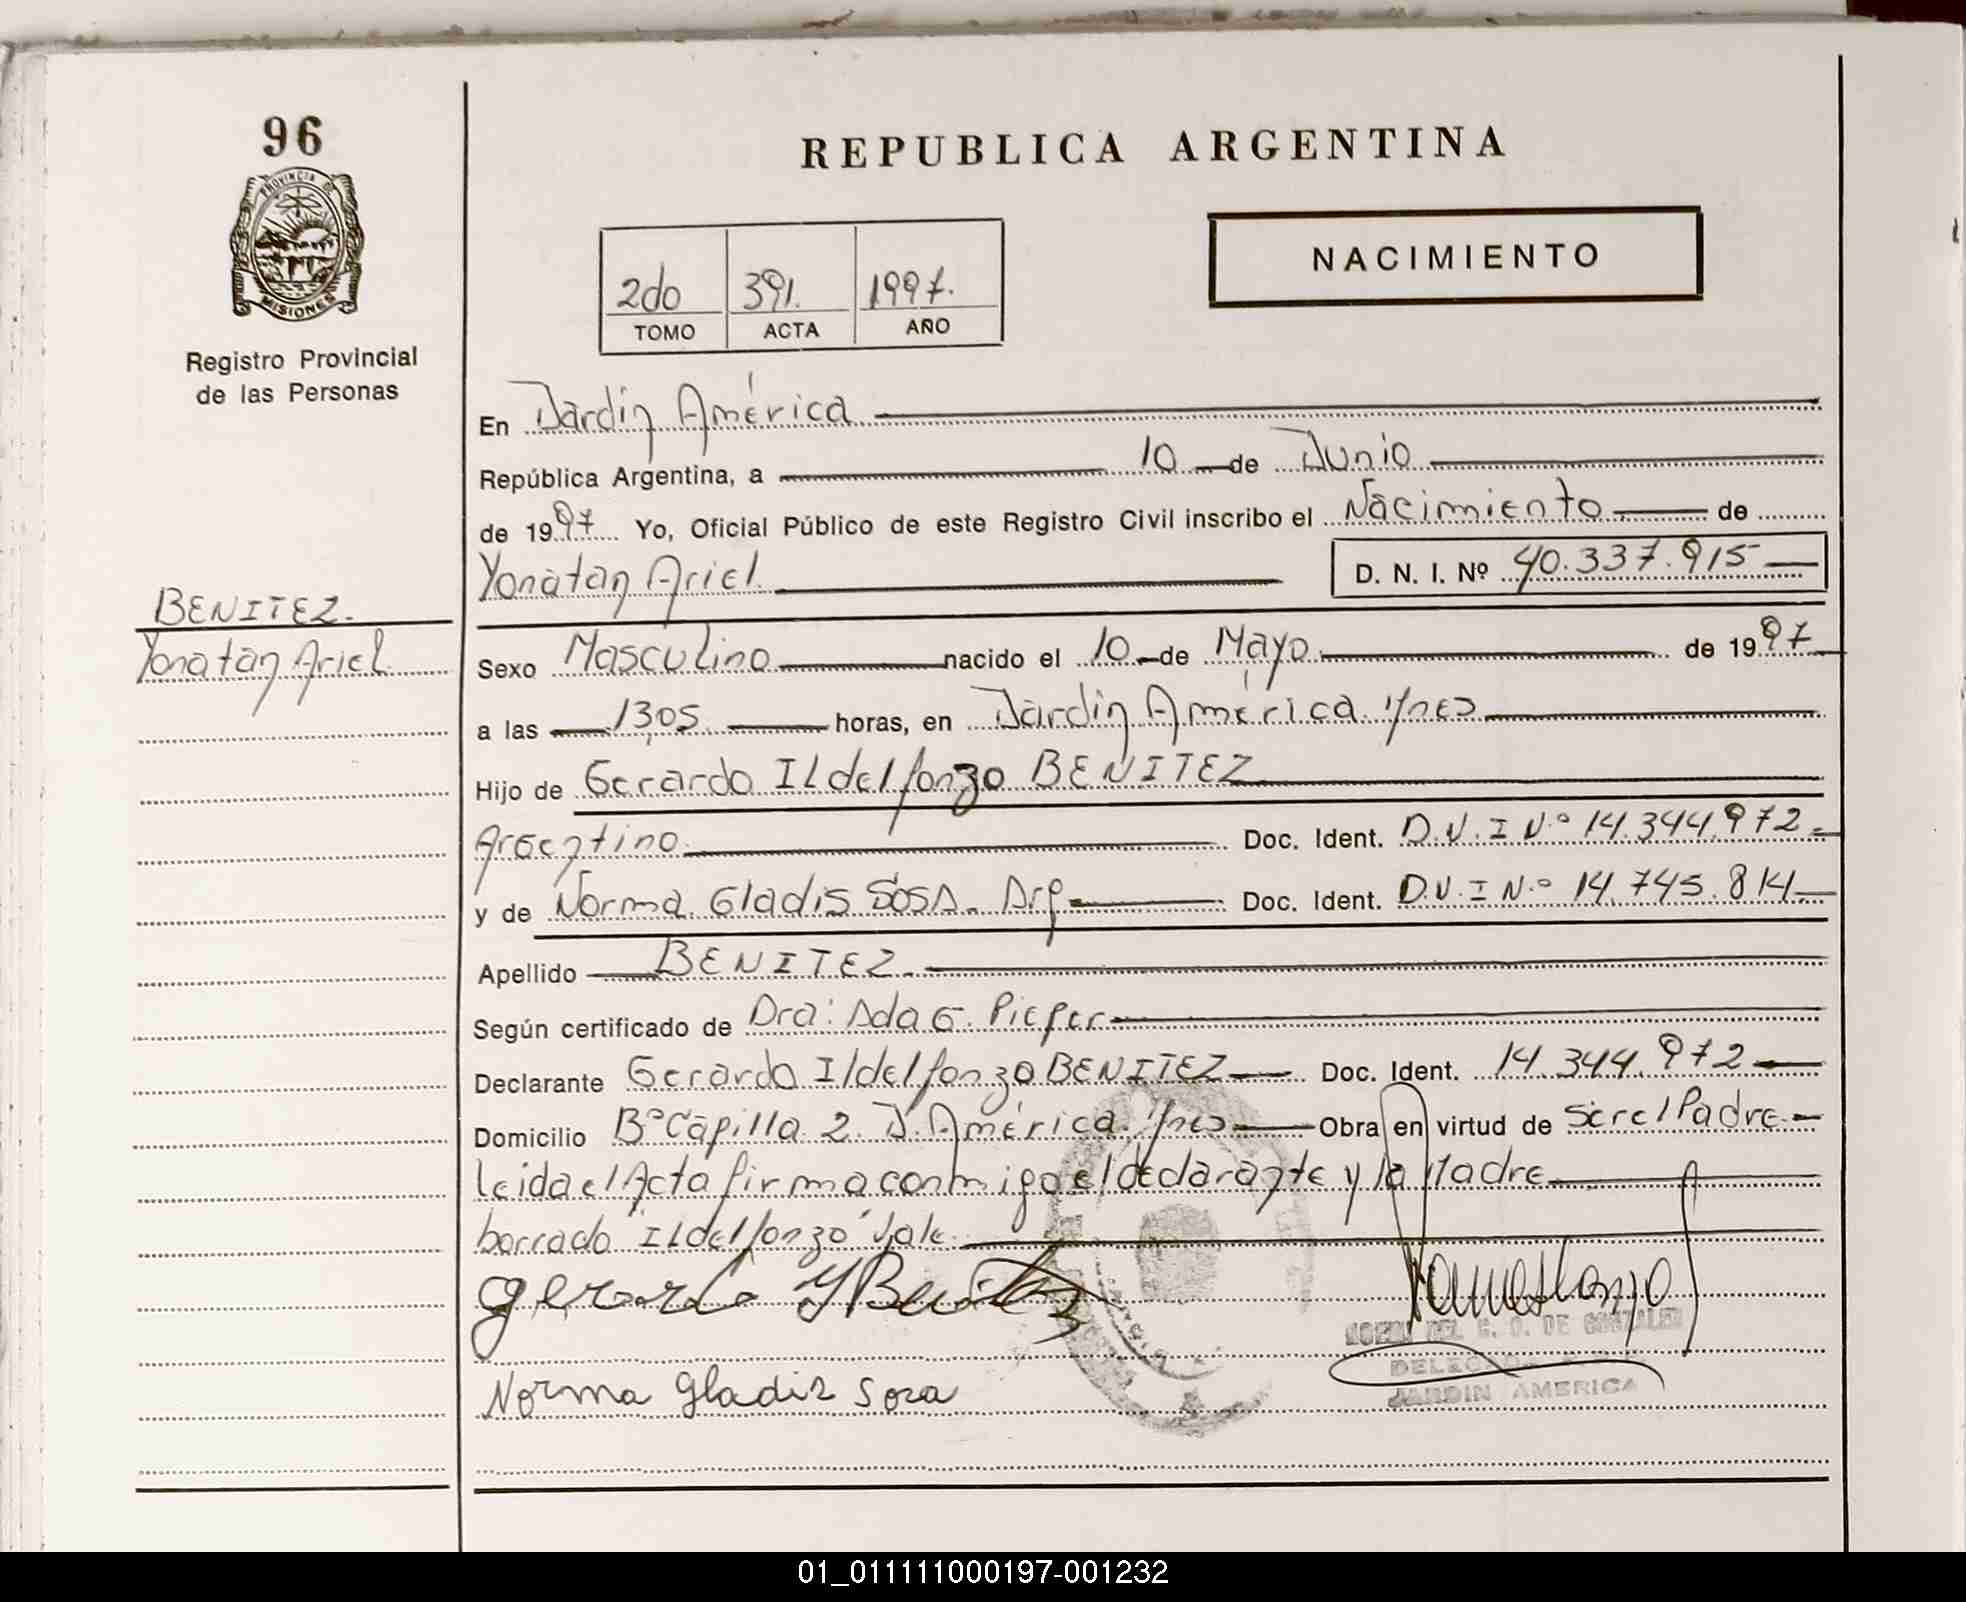 96
PROVINCIA DE
MISIONES
Registro Provincial
de las Personas
BENITEZ.
Yonatan Ariel
REPUBLICA ARGENTINA
NACIMIENTO
2do 391. 1997.
TOMO ACTA AÑO
En Jardin América
República Argentina, a 10 de Junio
de 1997 Yo, Oficial Público de este Registro Civil inscribo el Nacimiento de
Yonatan Ariel. D. N. I. Nº 40.337.915
Sexo Masculino nacido el 10 de Mayo de 1997
a las 13,05 horas, en Jardin América Mnes
Hijo de Gerardo ILdelfonzo BENITEZ
Argentino Doc. Ident. D.N.I Nº 14.344.972
y de Norma Gladis SOSA. Arg Doc. Ident. D.N.I Nº 14.745.814
Apellido BENITEZ.
Según certificado de Dra: Ada G. Piefer
Declarante Gerardo Ildelfonzo BENITEZ Doc. Ident. 14.344.972
Domicilio Bº Capilla 2. J. América. Mnes Obra en virtud de Ser el Padre.
leida el Acta firma conmigo el declarante y la Madre
borrado "ILdelfonzo" Vale.
gerardo Y Benitez
Norma Gladis Sosa
DEL C. D. DE GONZALEZ
JARDIN AMERICA
01_011111000197-001232